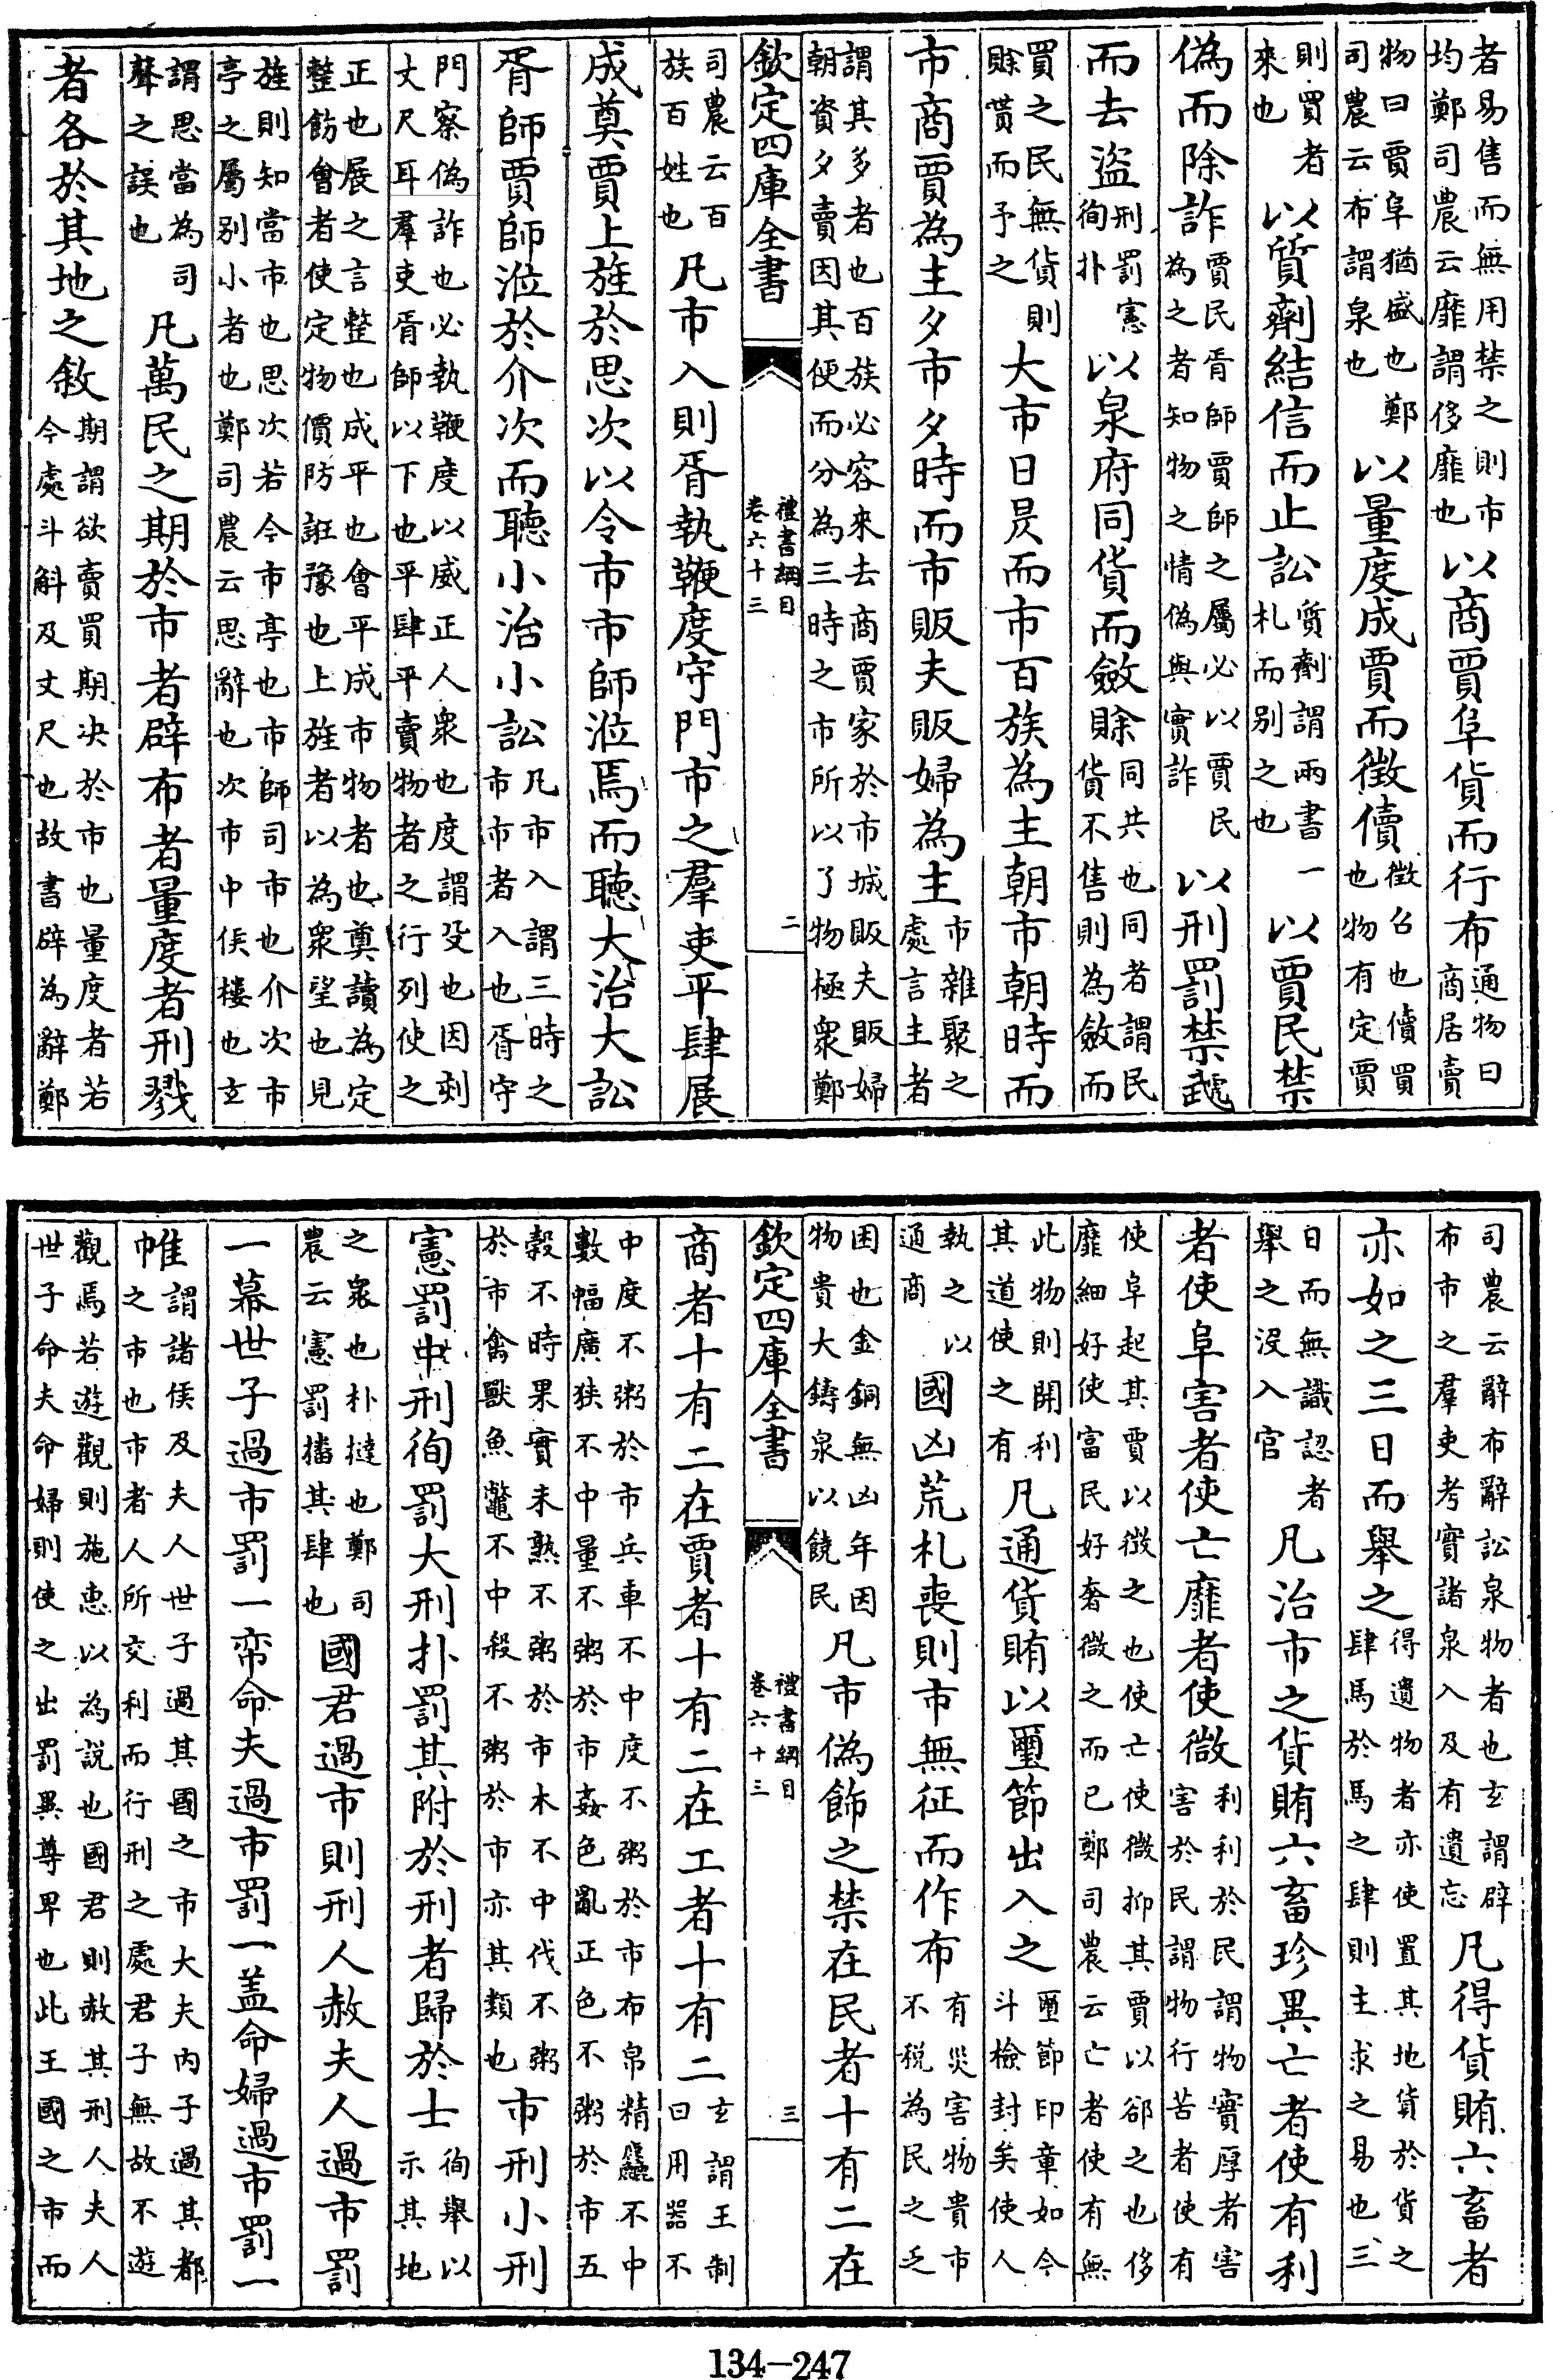 者易售而無用禁之則市均鄭司農云靡謂侈靡也以商賈阜貨而行布通物曰商居賣
物曰賈阜猶盛也鄭司農云布謂泉也以量度成賈而徵儥徵召也儥買也物有定賈
則買者來也以質劑結信而止訟質劑謂兩書一札而别之也以賈民禁
偽而除詐賈民胥師賈師之屬必以賈民為之者知物之情偽與實詐以刑罰禁虣
而去盜刑罰憲徇扑以泉府同貨而斂賒同共也同者謂民貨不售則為斂而
買之民無貨則賒貰而予之大市日昃而市百族為主朝市朝時而
市商賈為主夕市夕時而市販夫販婦為主市雜聚之處言主者
謂其多者也百族必容來去商賈家於市城販夫販婦朝資夕賣因其便而分為三時之市所以了物極衆鄭
欽定四庫全書 禮書綱目卷六十三 二
司農云百族百姓也凡市入則胥執鞭度守門市之羣吏平肆展
成奠賈上旌於思次以令市市師涖焉而聽大治大訟
胥師賈師涖於介次而聽小治小訟凡市入謂三時之市市者入也胥守
門察偽詐也必執鞭度以威正人衆也度謂殳也因刻丈尺耳羣吏胥師以下也平肆平賣物者之行列使之
正也展之言整也成平也會平成市物者也奠讀為定整飭會者使定物價防誑豫也上旌者以為衆望也見
旌則知當市也思次若今市亭也市師司市也介次市亭之屬别小者也鄭司農云思辭也次市中侯樓也玄
謂思當為司聲之誤也凡萬民之期於市者辟布者量度者刑戮
者各於其地之敘期謂欲賣買期决於市也量度者若今處斗斛及丈尺也故書辟為辭鄭
司農云辭布辭訟泉物者也玄謂辟布市之羣吏考實諸泉入及有遺忘凡得貨賄六畜者
亦如之三日而舉之得遺物者亦使置其地貨於貨之肆馬於馬之肆則主求之易也三
日而無識認者舉之沒入官凡治市之貨賄六畜珍異亡者使有利
者使阜害者使亡靡者使微利利於民謂物實厚者害害於民謂物行苦者使有
使阜起其賈以徵之也使亡使微抑其賈以郤之也侈靡細好使富民好奢微之而已鄭司農云亡者使有無
此物則開利其道使之有凡通貨賄以璽節出入之璽節印章如今斗檢封矣使人
執之以通商國凶荒札喪則市無征而作布有災害物貴市不税為民之乏
困也金銅無凶年因物貴大鑄泉以饒民凡市偽飾之禁在民者十有二在
欽定四庫全書 禮書綱目卷六十三 三
商者十有二在賈者十有二在工者十有二玄謂王制曰用器不
中度不粥於市兵車不中度不粥於市布帛精麤不中數幅廣狭不中量不粥於市姦色亂正色不粥於市五
穀不時果實未熟不粥於市木不中伐不粥於市禽獸魚鼈不中殺不粥於市亦其類也市刑小刑
憲罰中刑徇罰大刑扑罰其附於刑者歸於士徇舉以示其地
之衆也朴撻也鄭司農云憲罰播其肆也國君過市則刑人赦夫人過市罰
一幕世子過市罰一帟命夫過市罰一盖命婦過市罰一
帷謂諸侯及夫人世子過其國之市大夫内子過其都之市也市者人所交利而行刑之處君子無故不遊
觀焉若遊觀則施惠以為説也國君則赦其刑人夫人世子命夫命婦則使之出罰異尊卑也此王國之市而
134-247